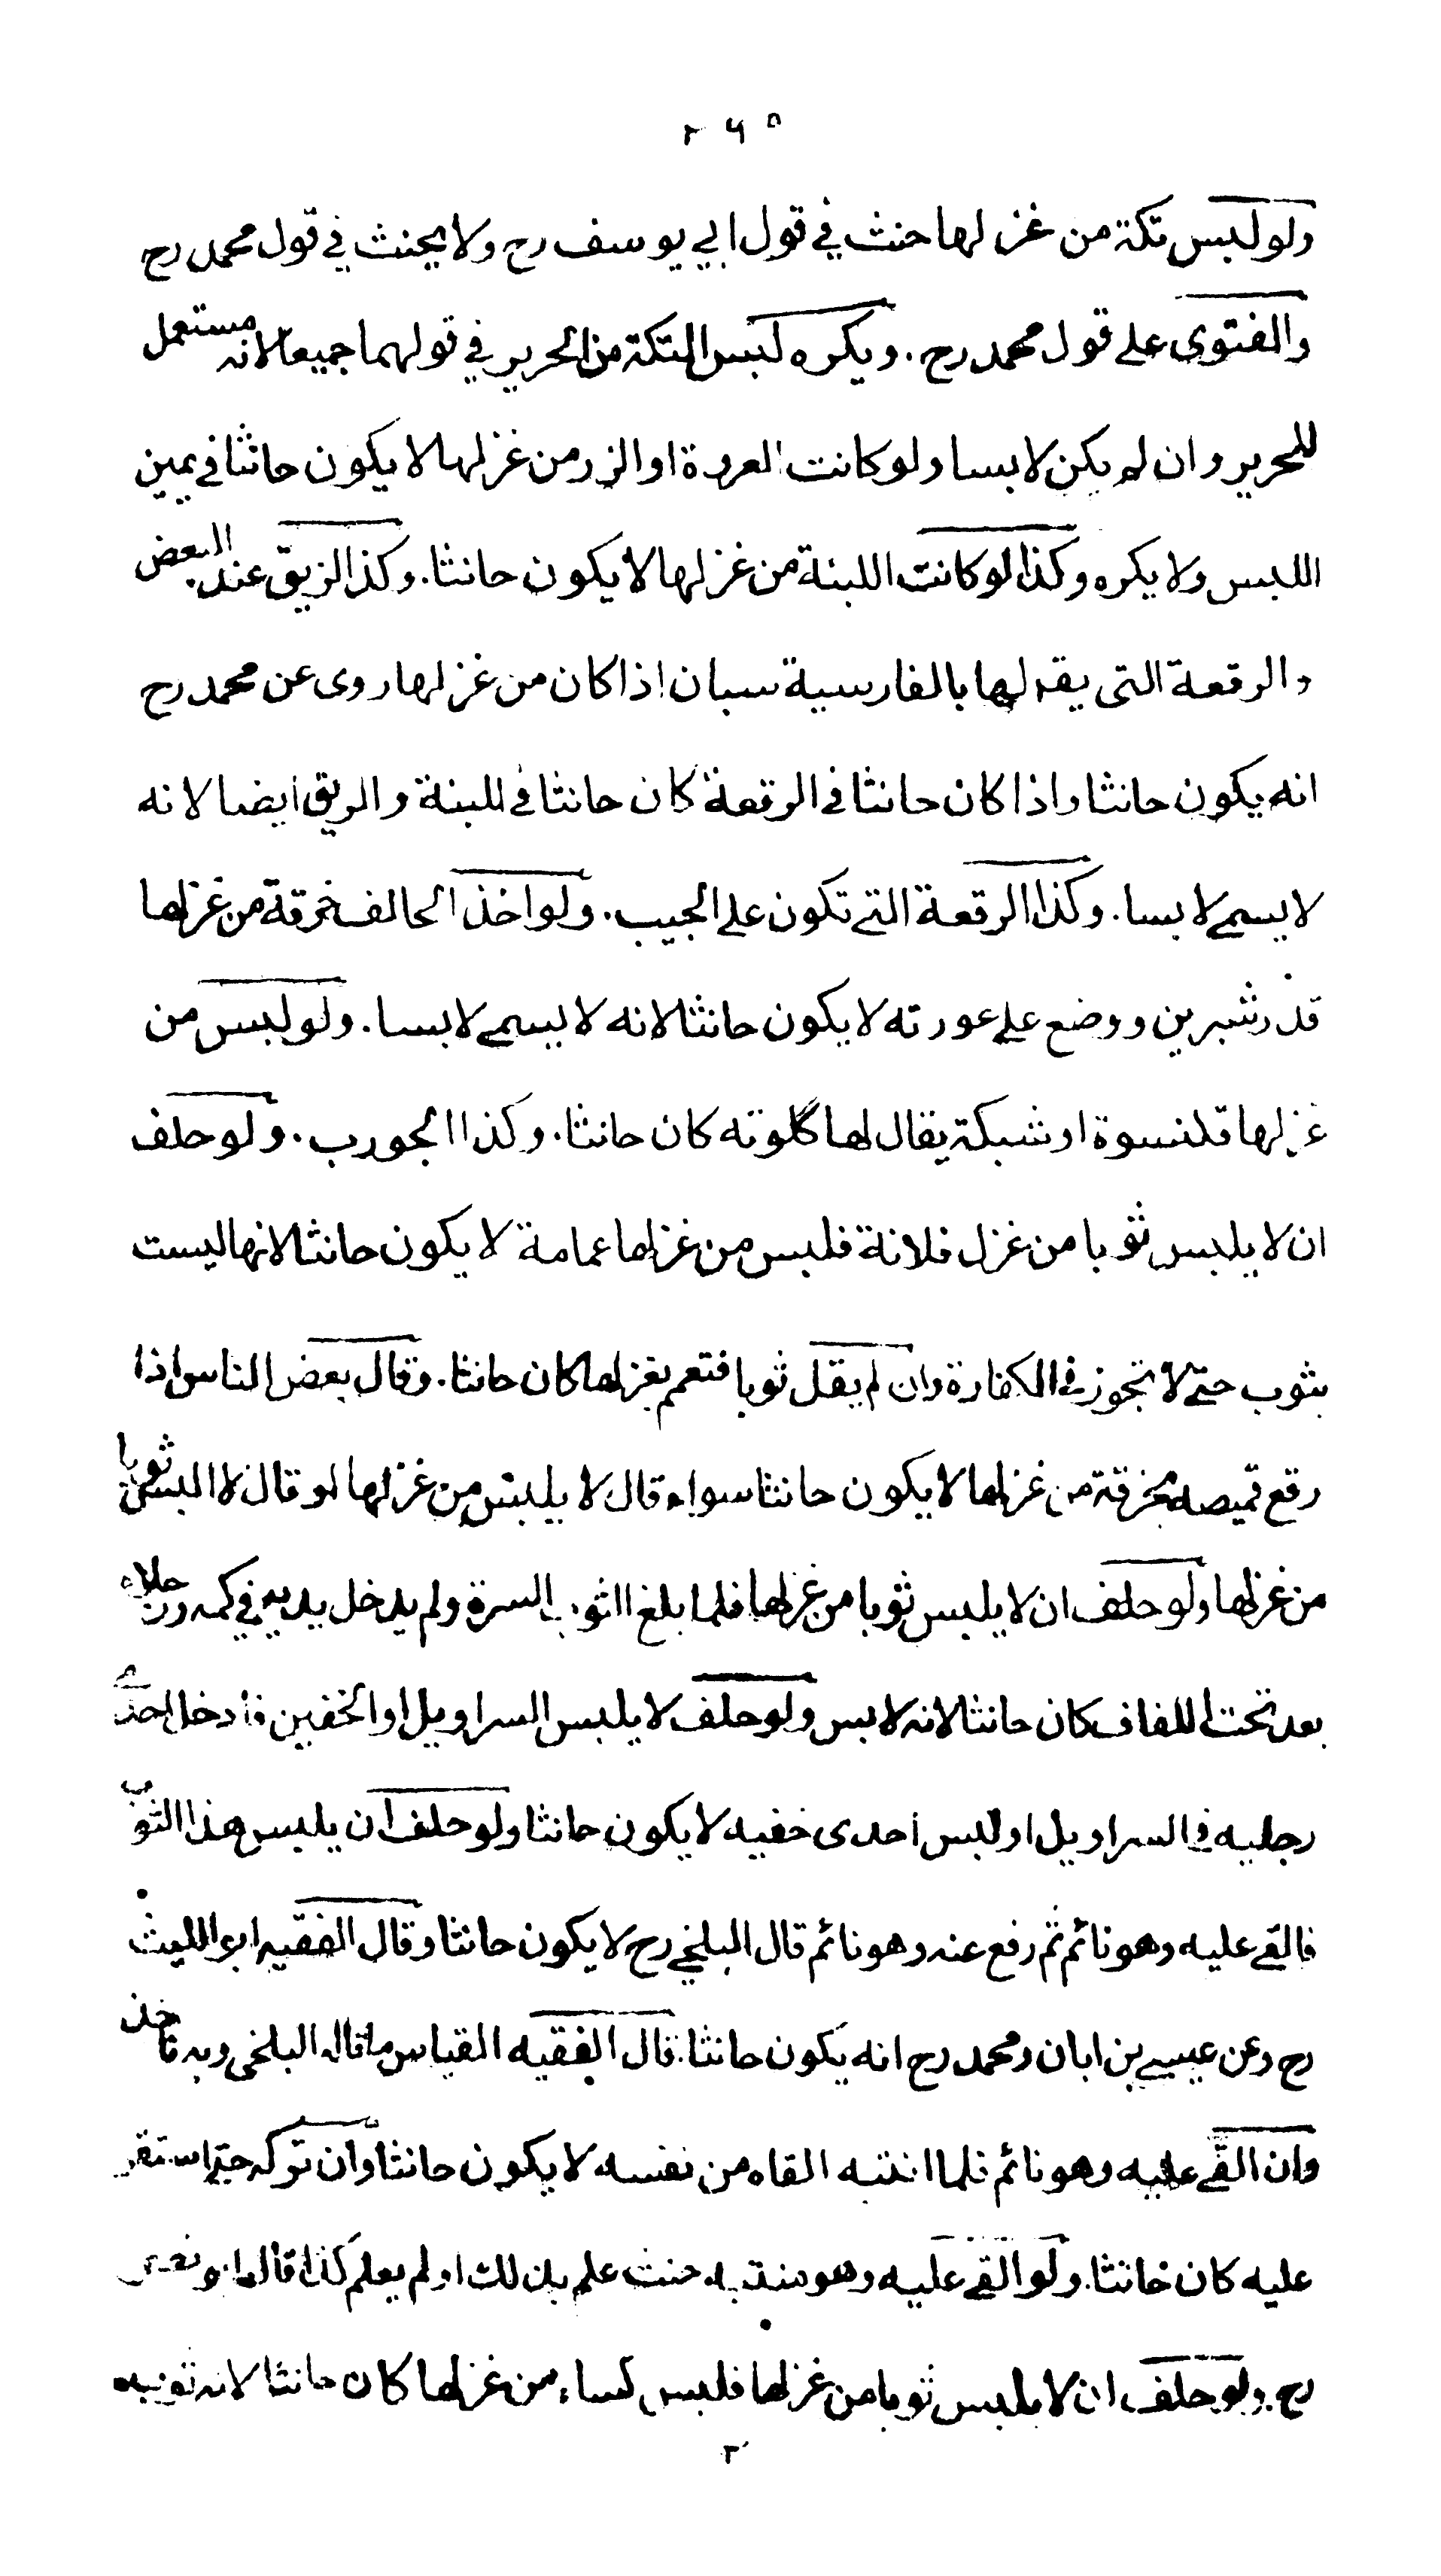 ٢٦٥
ولو لبس تكة من غزلها حنث في قول ابي يوسف رح ولا يحنث في قول محمد رح
والفتوى على قول محمد رح. ويكره لبس التكة من الحرير في قولهما جميعا لانه مستعمل
للحرير وان لم يكن لابسا ولو كانت العروة او الزر من غزلها لا يكون حانثا في يمين
اللبس ولا يكره وكذا لو كانت اللبنة من غزلها لا يكون حانثا. وكذا الزيق عند البعض
والرقعة التي يقه لها بالفارسية سبان اذا كان من غزلها روى عن محمد رح
انه يكون حانثا واذا كان حانثا في الرقعة كان حانثا في اللبنة والزيق ايضا لانه
لا يسمى لابسا. وكذا الرقعة التي تكون على الجيب. ولو اخذ الحالف خرقة من غزلها
قدر شبرين ووضع على عورته لا يكون حانثا لانه لا يسمى لابسا. ولو لبس من
غزلها قلنسوة او شبكة يقال لها گلوته كان حانثا. وكذا الجورب. ولو حلف
ان لا يلبس ثوبا من غزل فلانة فلبس من غزلها عمامة لا يكون حانثا لانها ليست
بثوب حتى لا تجوز في الكفارة وان لم يقل ثوبا فتعمم بغزلها كان حانثا. وقال بعض الناس اذا
رقع قميصه بخرقة من غزلها لا يكون حانثا سواء قال لا يلبس من غزلها او قال لا البس ثوبا
من غزلها ولو حلف ان لا يلبس ثوبا من غزلها فلما بلغ الثوب السرة ولم يدخل يديه في كمه ورجلاه
بعد تحت اللفاف كان حانثا لانه لابس ولو حلف لا يلبس السراويل او الخفين فادخل احدى
رجليه في السراويل او لبس احدى خفيه لا يكون حانثا ولو حلف ان يلبس هذا الثوب
فالقى عليه وهو نائم ثم رفع عنه وهو نائم قال البلخي رح لا يكون حانثا وقال الفقيه ابو الليث
رح وعن عيسى بن ابان ومحمد رح انه يكون حانثا. قال الفقيه القياس ما قاله البلخي وبه ناخذ
وان القى عليه وهو نائم فلما انتبه القاه من نفسه لا يكون حانثا وان تركه حتى استقر
عليه كان حانثا. ولو القى عليه وهو منتبه حنث علم بذلك او لم يعلم كذا قال ابو نصر
رح. ولو حلف ان لا يلبس ثوبا من غزلها فلبس كساء من غزلها كان حانثا لانه ثوب